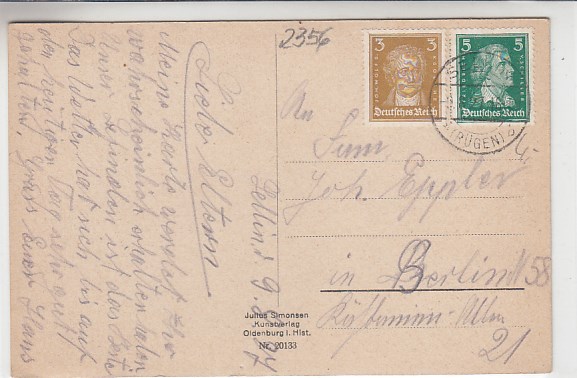 2356
3
Deutsches Reich
5
Deutsches Reich
(RÜGEN)
Sellin d. 9.
L. 
Liebe Eltern
Meine Karte werdet Ihr
wahrscheinlich erhalten haben
Unser Befinden ist das Beste
Das Wetter hat sich bis auf
den heutigen Tag sehr gut
gehalten. Gruss Euer Hans
An
Fam.
Joh. Eppler
in Berlin N 58
Allee
21
Julius Simonsen
Kunstverlag
Oldenburg i. Hlst.
Nr. 20133